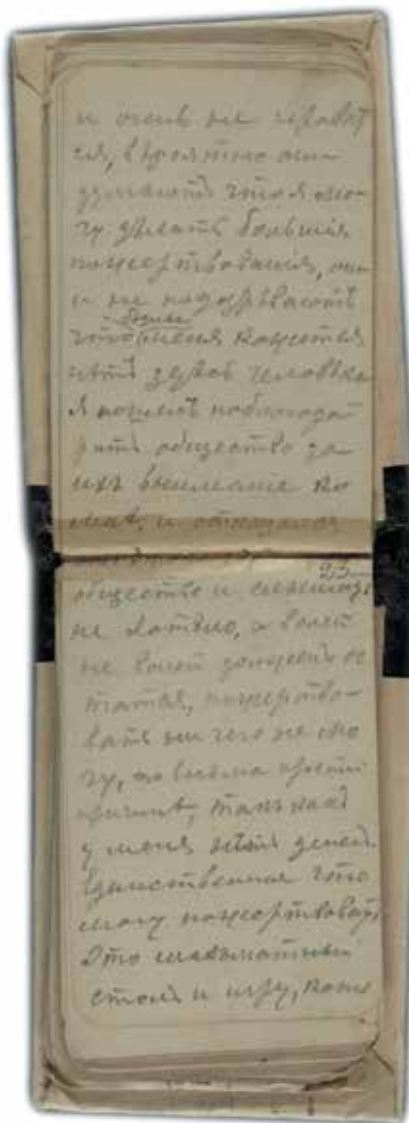 и очень не нрават
ся, вѣроятно они
думаютъ что я мо-
гу дѣлать большія
пожертвованія, они
и не подозрѣваютъ
бѣднѣе
что меня кажется
нѣтъ здѣсь человѣка
Я пошелъ поблагода-
рить общество за
ихъ вниманіе ко
мнѣ, и отказался
23
общество и слышать
не хотѣло, и волей
не волей долженъ ос
таться, пожертво-
вать ни чего не мо
гу, по весьма простой
причинѣ, такъ какъ
у меня нѣтъ денегъ.
Единственное что
могу пожертвовать,
Это шахматный
столъ и игру, кото